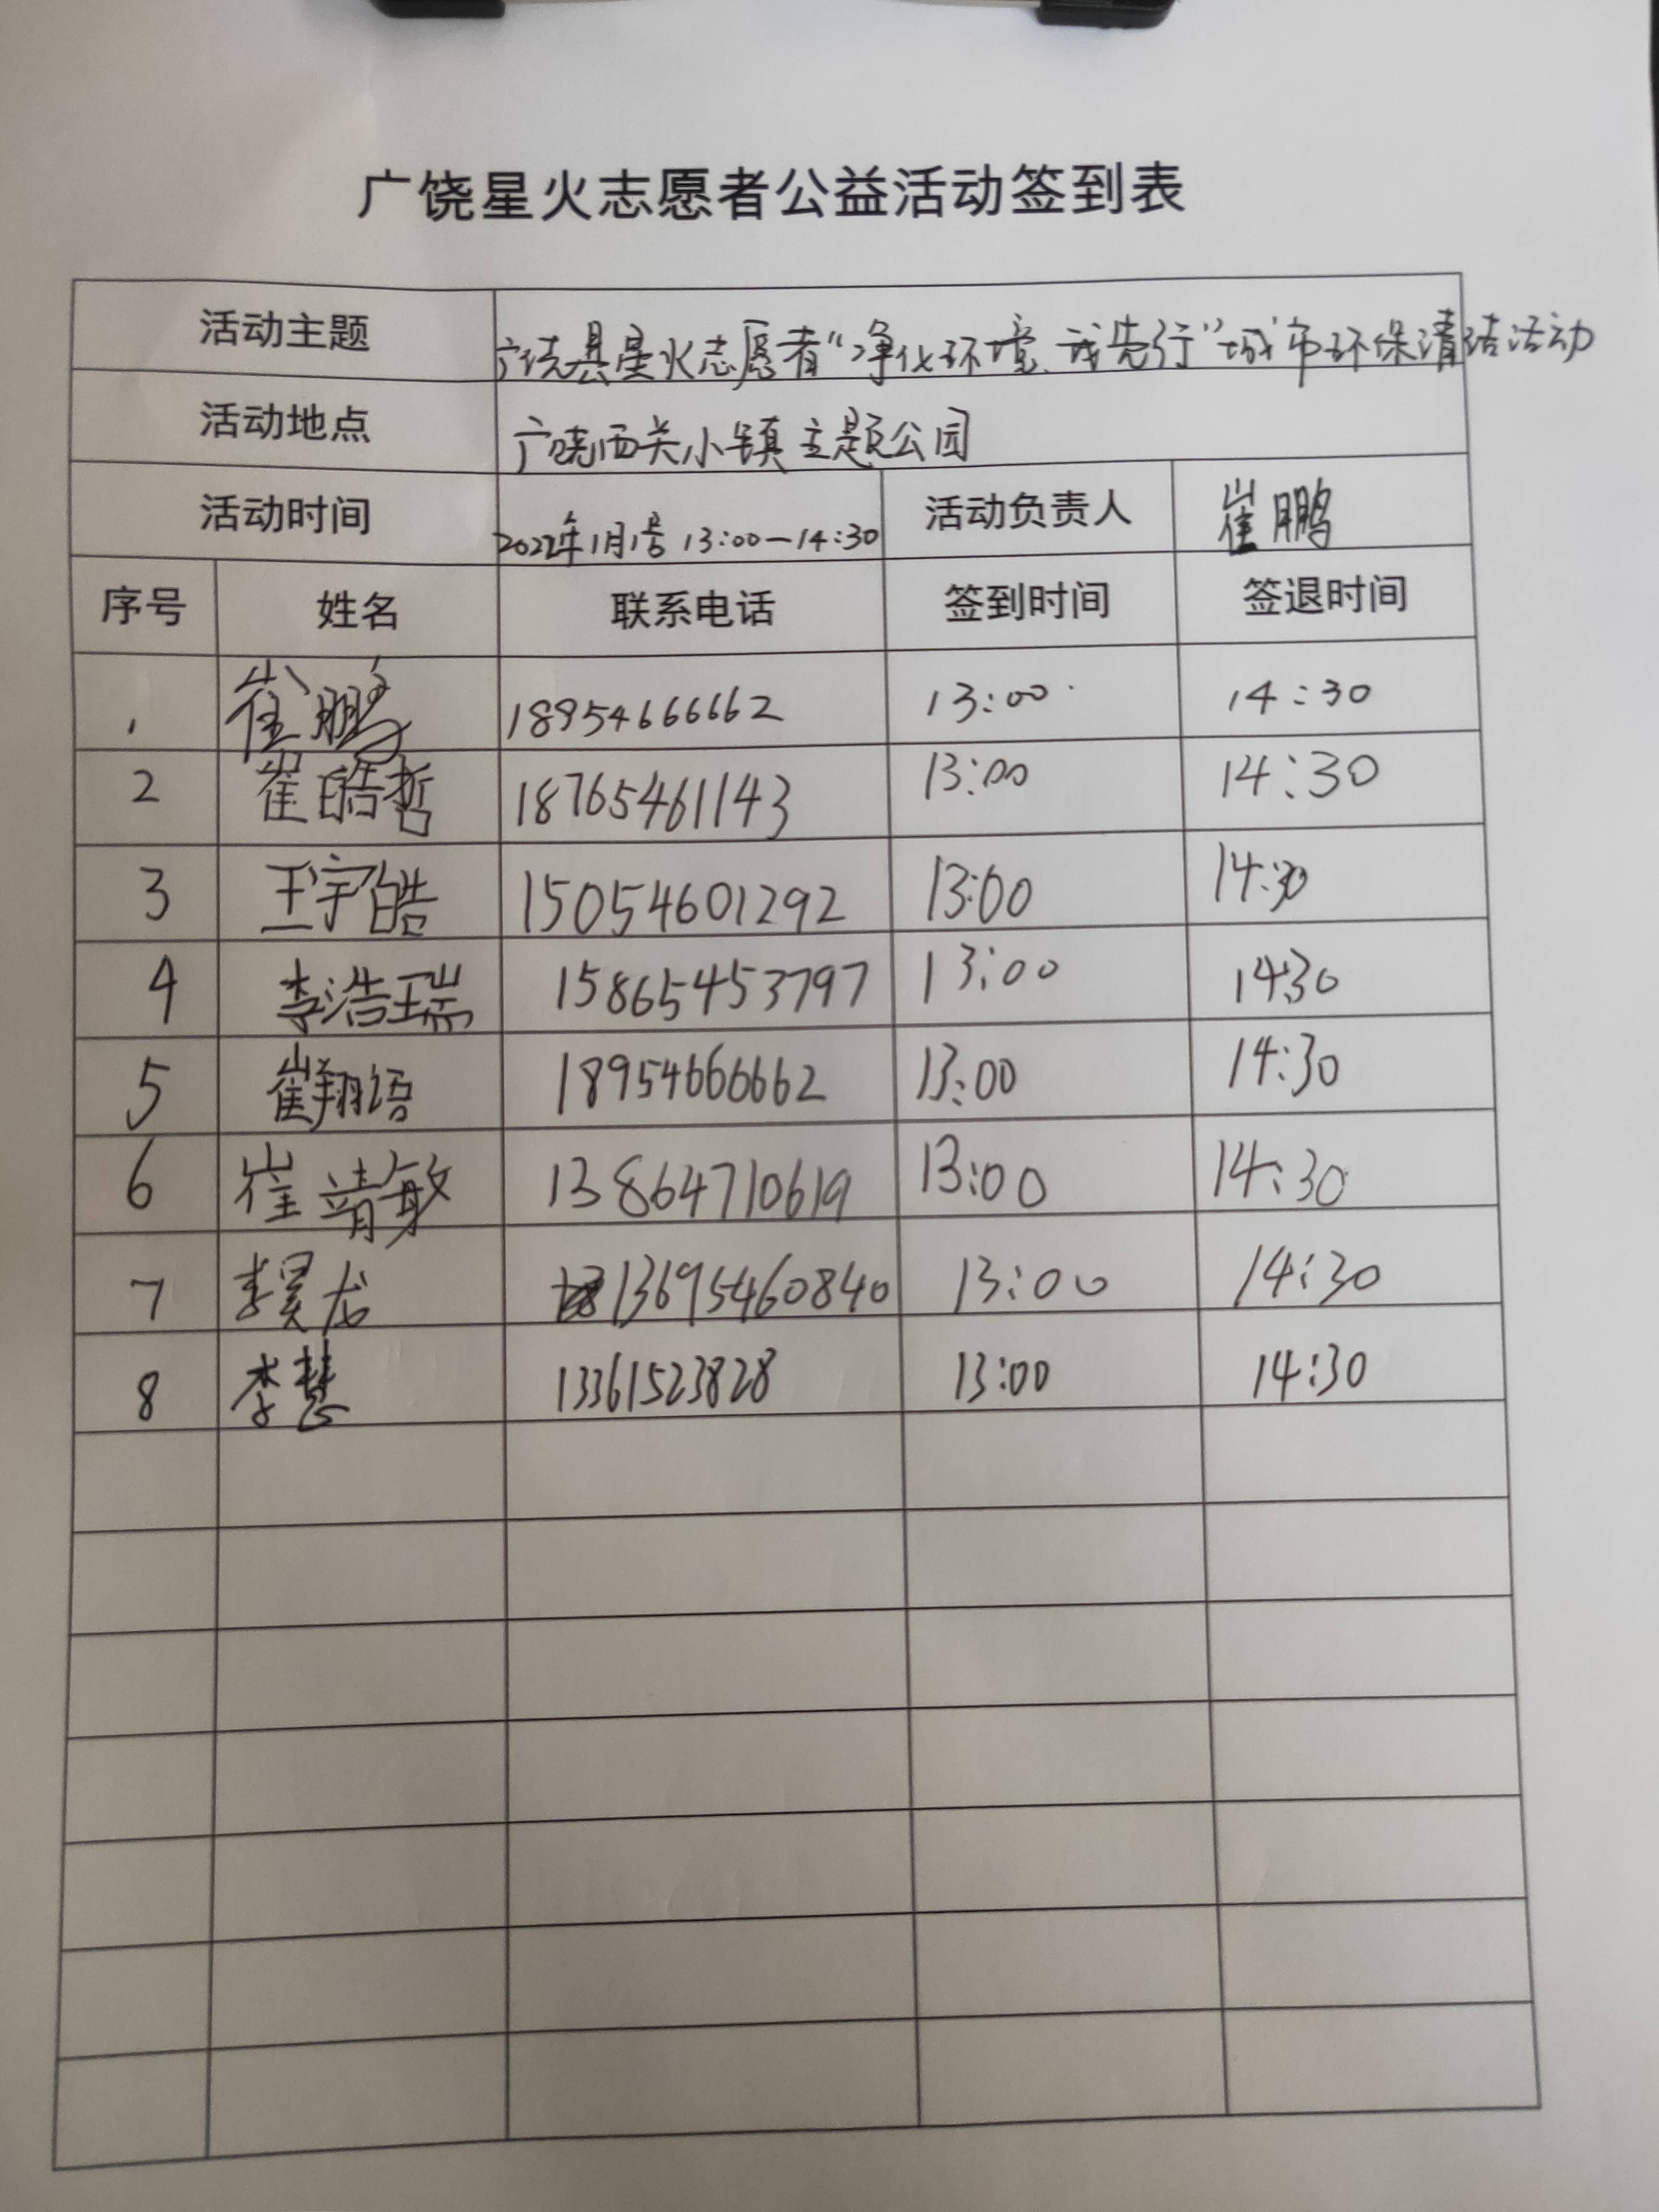 广饶星火志愿者公益活动签到表
活动主题 广饶县星火志愿者“净化环境、我先行”城市环保清洁活动
活动地点 广饶西关小镇主题公园
活动时间 2022年1月1号 13:00—14:30 活动负责人 崔鹏
序号 姓名 联系电话 签到时间 签退时间
1 崔鹏 18954666662 13:00 14:30
2 崔皓哲 18765461143 13:00 14:30
3 王宇皓 15054601292 13:00 14:30
4 李浩瑞 15865453797 13:00 14:30
5 崔翔语 18954666662 13:00 14:30
6 崔靖敏 13864710619 13:00 14:30
7 李昊龙 13695460840 13:00 14:30
8 李慧 13361523828 13:00 14:30